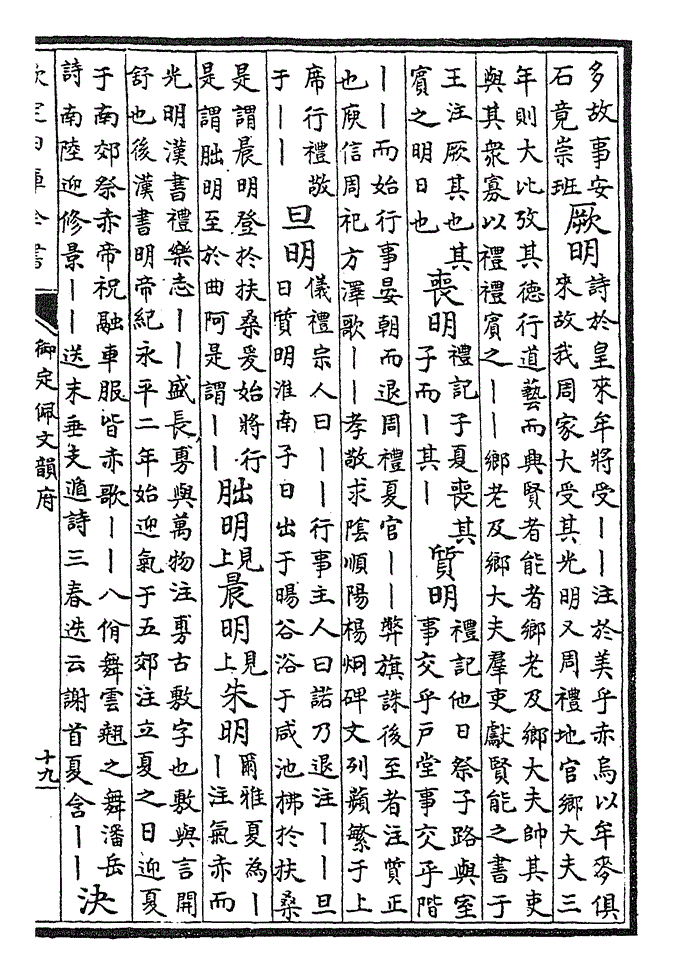 多故事安
石竟崇班
厥明
詩於皇來牟將受丨丨注於美乎赤烏以牟麥俱
來故我周家大受其光明又周禮地官鄉大夫三
年則大比攷其德行道藝而興賢者能者鄉老及鄉大夫帥其吏
與其衆寡以禮禮賓之丨丨鄉老及鄉大夫羣吏獻賢能之書于
王注厥其也其
賓之明日也
喪明
禮記子夏喪其
子而丨其丨
質明
禮記他日祭子路與室
事交乎戶堂事交乎階
丨丨而始行事晏朝而退周禮夏官丨丨弊旗誅後至者注質正
也庾信周祀方澤歌丨丨孝敬求陰順陽楊炯碑文列蘋繁于上
席行禮敬
于丨丨
旦明
儀禮宗人曰丨丨行事主人曰諾乃退注丨丨旦
日質明淮南子日出于暘谷浴于咸池拂於扶桑
是謂晨明登於扶桑爰始將行
是謂朏明至於曲阿是謂丨丨
朏明
見上
晨明
見上
朱明
爾雅夏為丨
丨注氣赤而
光明漢書禮樂志丨丨盛長旉與萬物注旉古敷字也敷與言開
舒也後漢書明帝紀永平二年始迎氣于五郊注立夏之日迎夏
于南郊祭赤帝祝融車服皆赤歌丨丨八佾舞雲翹之舞潘岳
詩南陸迎修景丨丨送末垂支遁詩三春迭云謝首夏含丨丨
決
欽定四庫全書
御定佩文韻府
十九